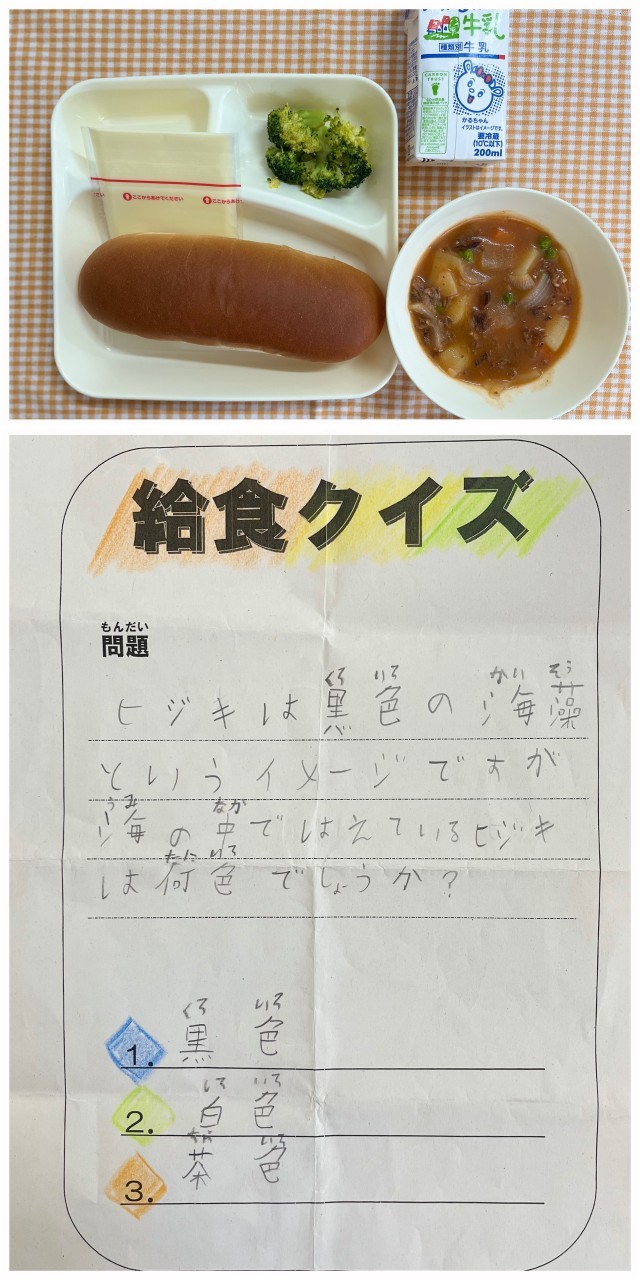 牛乳
種類別 牛乳
CARBON
TRUST
かるちゃん
イラストはイメージです。
要冷蔵
(10℃以下)
200ml
ここからあけてください
ここからあけ
給食クイズ
もんだい
問題
くろ いろ かい そう
ヒジキは黒色の海藻
というイメージですが
うみ なか
海の中ではえているヒジキ
なに いろ
は何色でしょうか?
くろ いろ
1. 黒色
しろ いろ
2. 白色
ちゃ いろ
3. 茶色